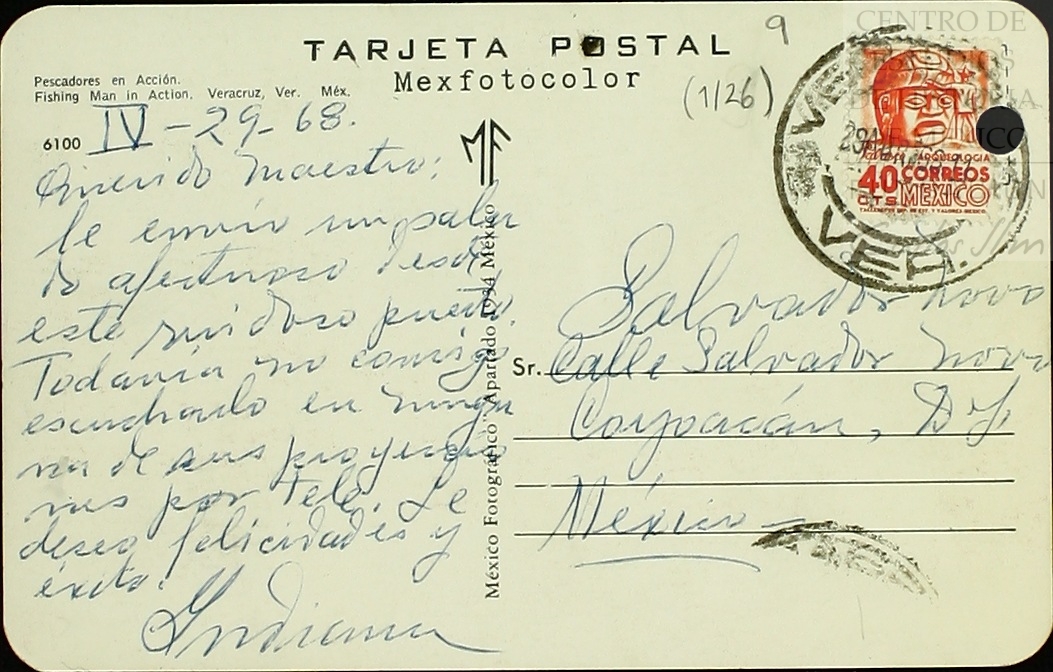 TARJETA POSTAL
Mexfotocolor
Pescadores en Acción.
Fishing Man in Action. Veracruz, Ver. Méx.
6100
IV - 29 - 68.
Querido Maestro:
le envío un salu
do afectuoso desde
este ruidoso puerto.
Todavía no consigo
escucharlo en ningu
na de sus proyeccio
nes por Tele. Le
deseo felicidades y
éxito.
Indiana
MF
México Fotográfico, Apartado 1934 México
9
(1/26)
CENTRO DE
MEXICO
VER.
ARQUEOLOGIA
40 CTS.
CORREOS
MEXICO
Sr. Salvador Novo
Calle Salvador Novo
Coyoacán, D.F.
México -